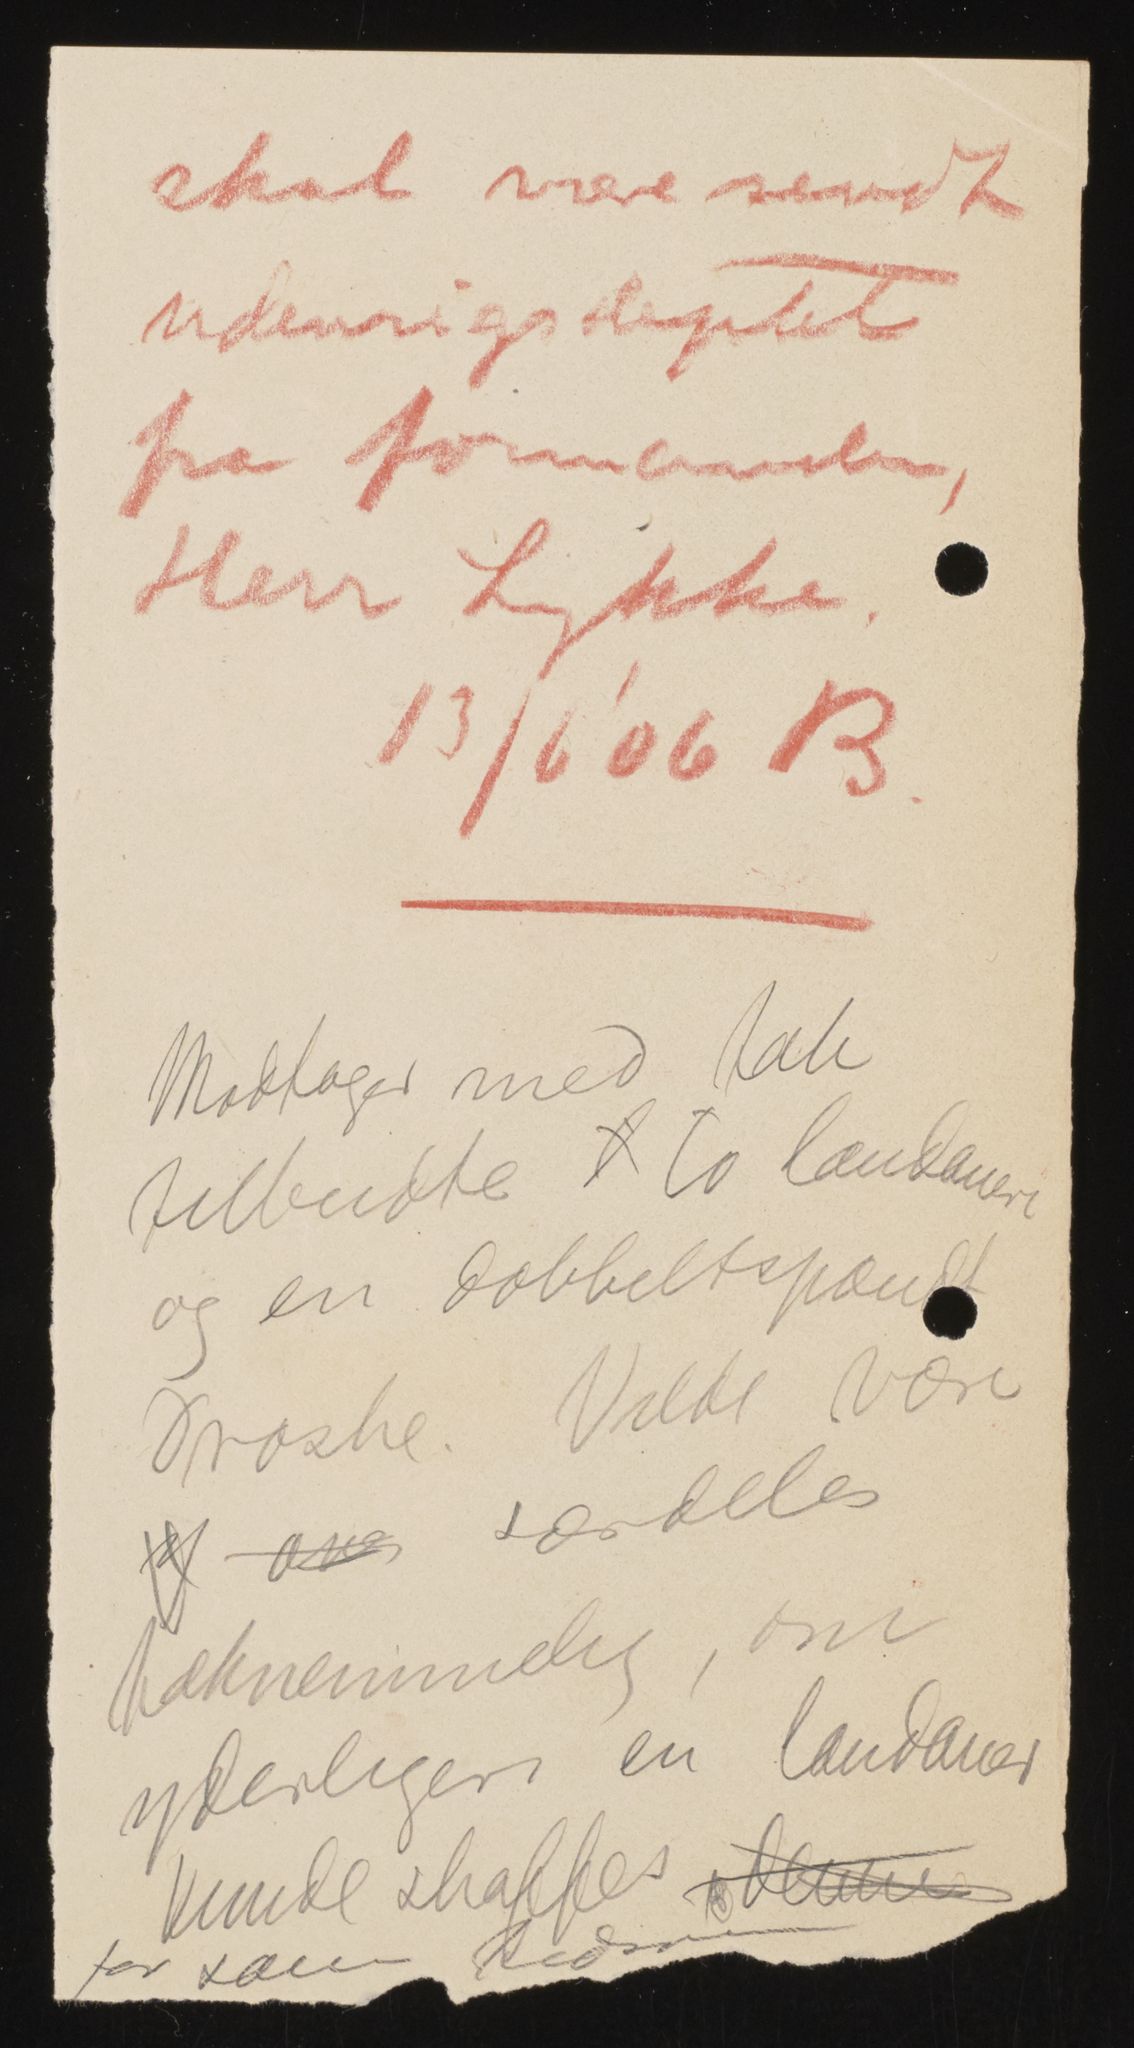 skal være sendt
udenrigsdeptet
fra formanden,
Herr Lykke.
13/6 '06 B.
Modtager med tak
tilbudte to landauere
og en dobbeltspændt
Droske. Vilde være
særdeles
taknemmelig, om
yderligere en landauer
kunde skaffes
for samme